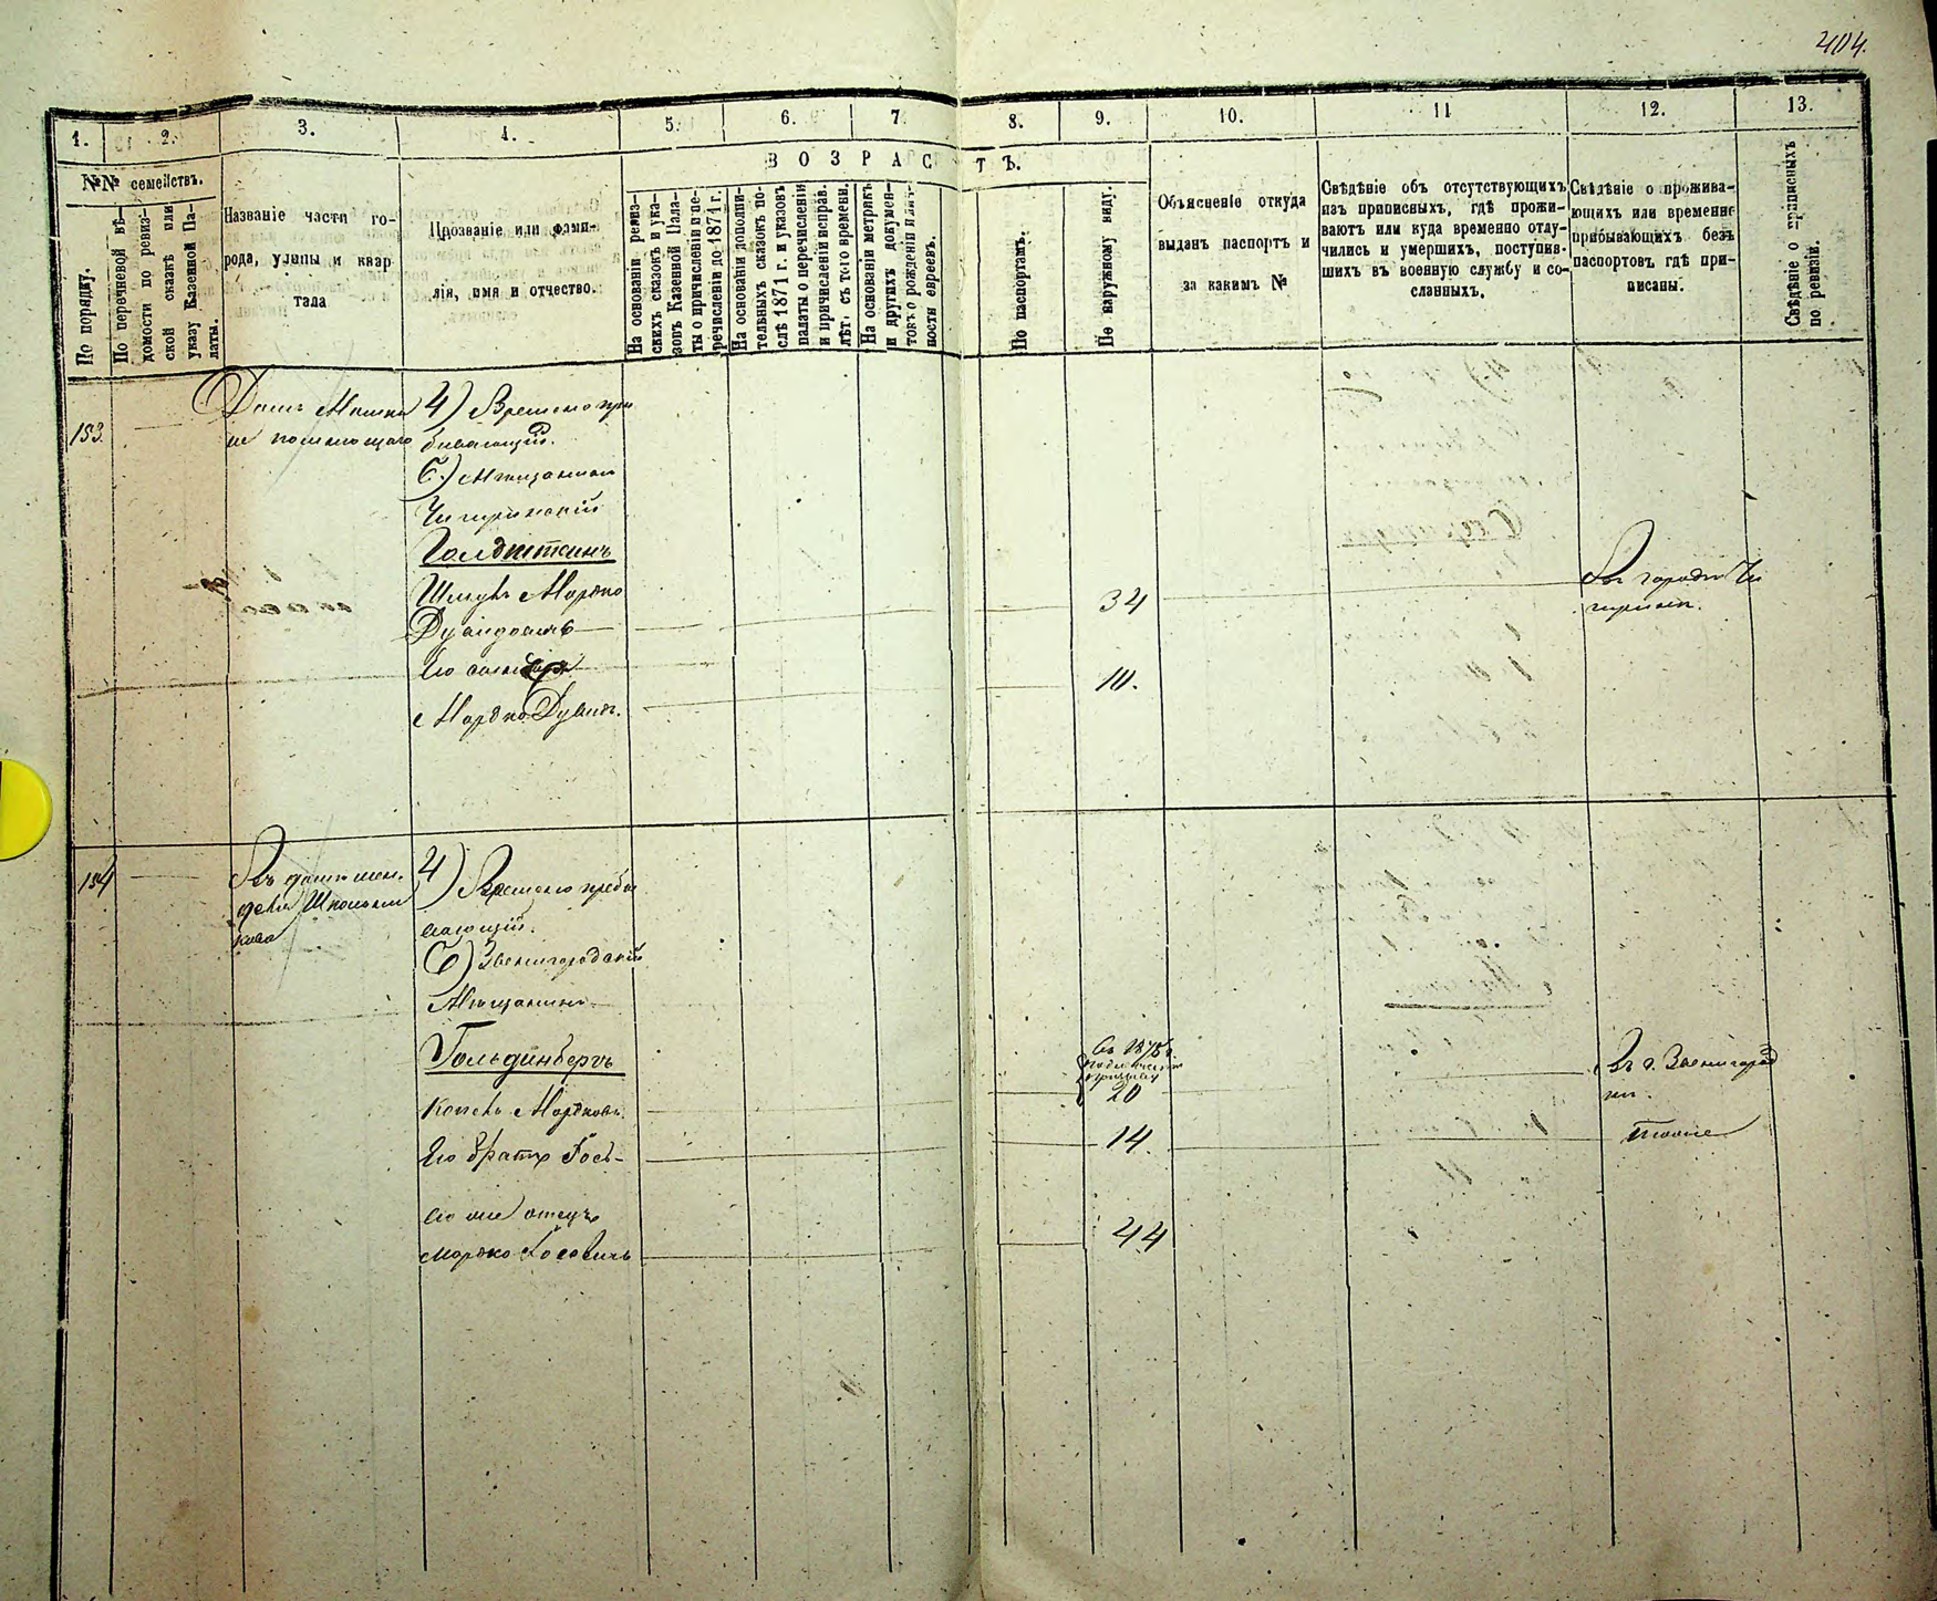 404.
1.
2.
3.
4.
5.
6.
7.
8.
9.
10.
11
12.
13.
№№ семействъ.
По порядку.
По перечневой вѣ-
домости по ревиз-
ской сказкѣ или
указу Казенной Па-
латы.
Названіе части го-
рода, улицы и квар
тала
Прозваніе или фами-
лія, имя и отчество.
ВОЗРАСТЪ.
На основаніи ревиз-
скихъ сказокъ и ука-
зовъ Казенной Пала-
ты о причисленіи и пе-
речисленіи до 1871 г.
На основаніи дополни-
тельныхъ сказокъ по-
слѣ 1871 г. и указовъ
палаты о перечисленіи
и причисленіи исправ.
лѣт. съ того времени.
На основаніи метрикъ
и других докумен-
товъ о рожденіи или
ности евреевъ.
По паспортамъ.
По наружному виду.
Объясненіе откуда
выданъ паспортъ и
за какимъ №
Свѣдѣніе объ отсутствующихъ
изъ приписныхъ, гдѣ прожи-
ваютъ или куда временно отлу-
чились и умершихъ, поступив-
шихъ въ военную службу и со-
сланныхъ.
Свѣдѣніе о прожива-
ющихъ или временно
прибывающихъ безъ
паспортовъ гдѣ при-
писаны.
Свѣдѣніе о приписныхъ
по ревизіи.
153.
4) Временно при
бивающій.
Б.) Мѣщанинъ
Чигиринскій
Голдштейнъ
Шмуль Мордко
34
Въ городѣ Чи
гиринѣ.
Его
10.
Мордко
154
Въ домѣ
4) Временно пребы
вающій.
Б) Звенигородскій
Мѣщанинъ
Гольдинбергъ
Копель Мордковъ.
20
Въ г. Звенигород
кѣ.
Его братъ Іось
14
тоже
его же отецъ
Мордко Іосевичъ
44